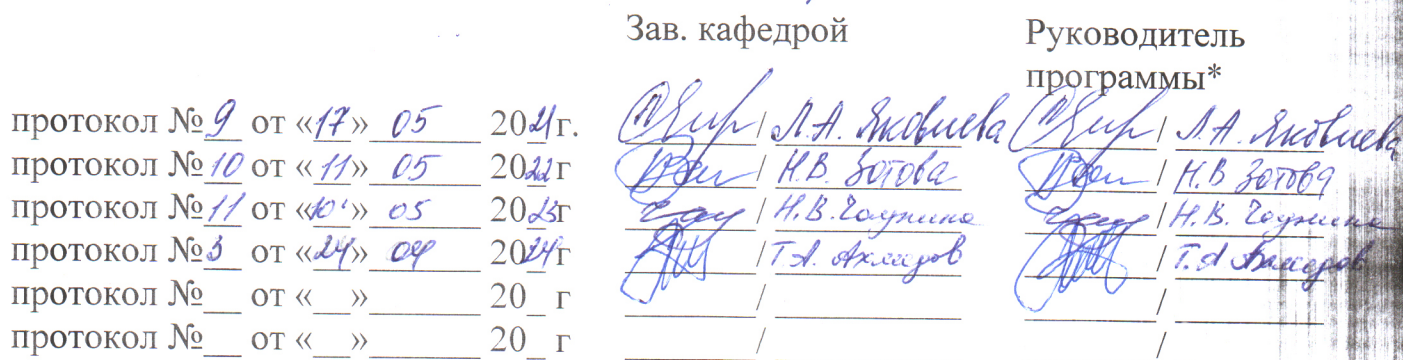 Зав. кафедрой Руководитель
программы*
протокол №9 от «17» 05 2021г. / Л.А. Яковлева / Л.А. Яковлева
протокол №10 от «11» 05 2022г / Н.В. Зотова / Н.В Зотова
протокол №11 от «10» 05 2023г / Н.В. / Н.В.
протокол №3 от «24» 04 2024г / Т.А. Ахмедов / Т.А Ахмедов
протокол №__ от «__»______ 20_ г ______/______ ______/______
протокол №__ от «__»______ 20_ г ______/______ ______/______